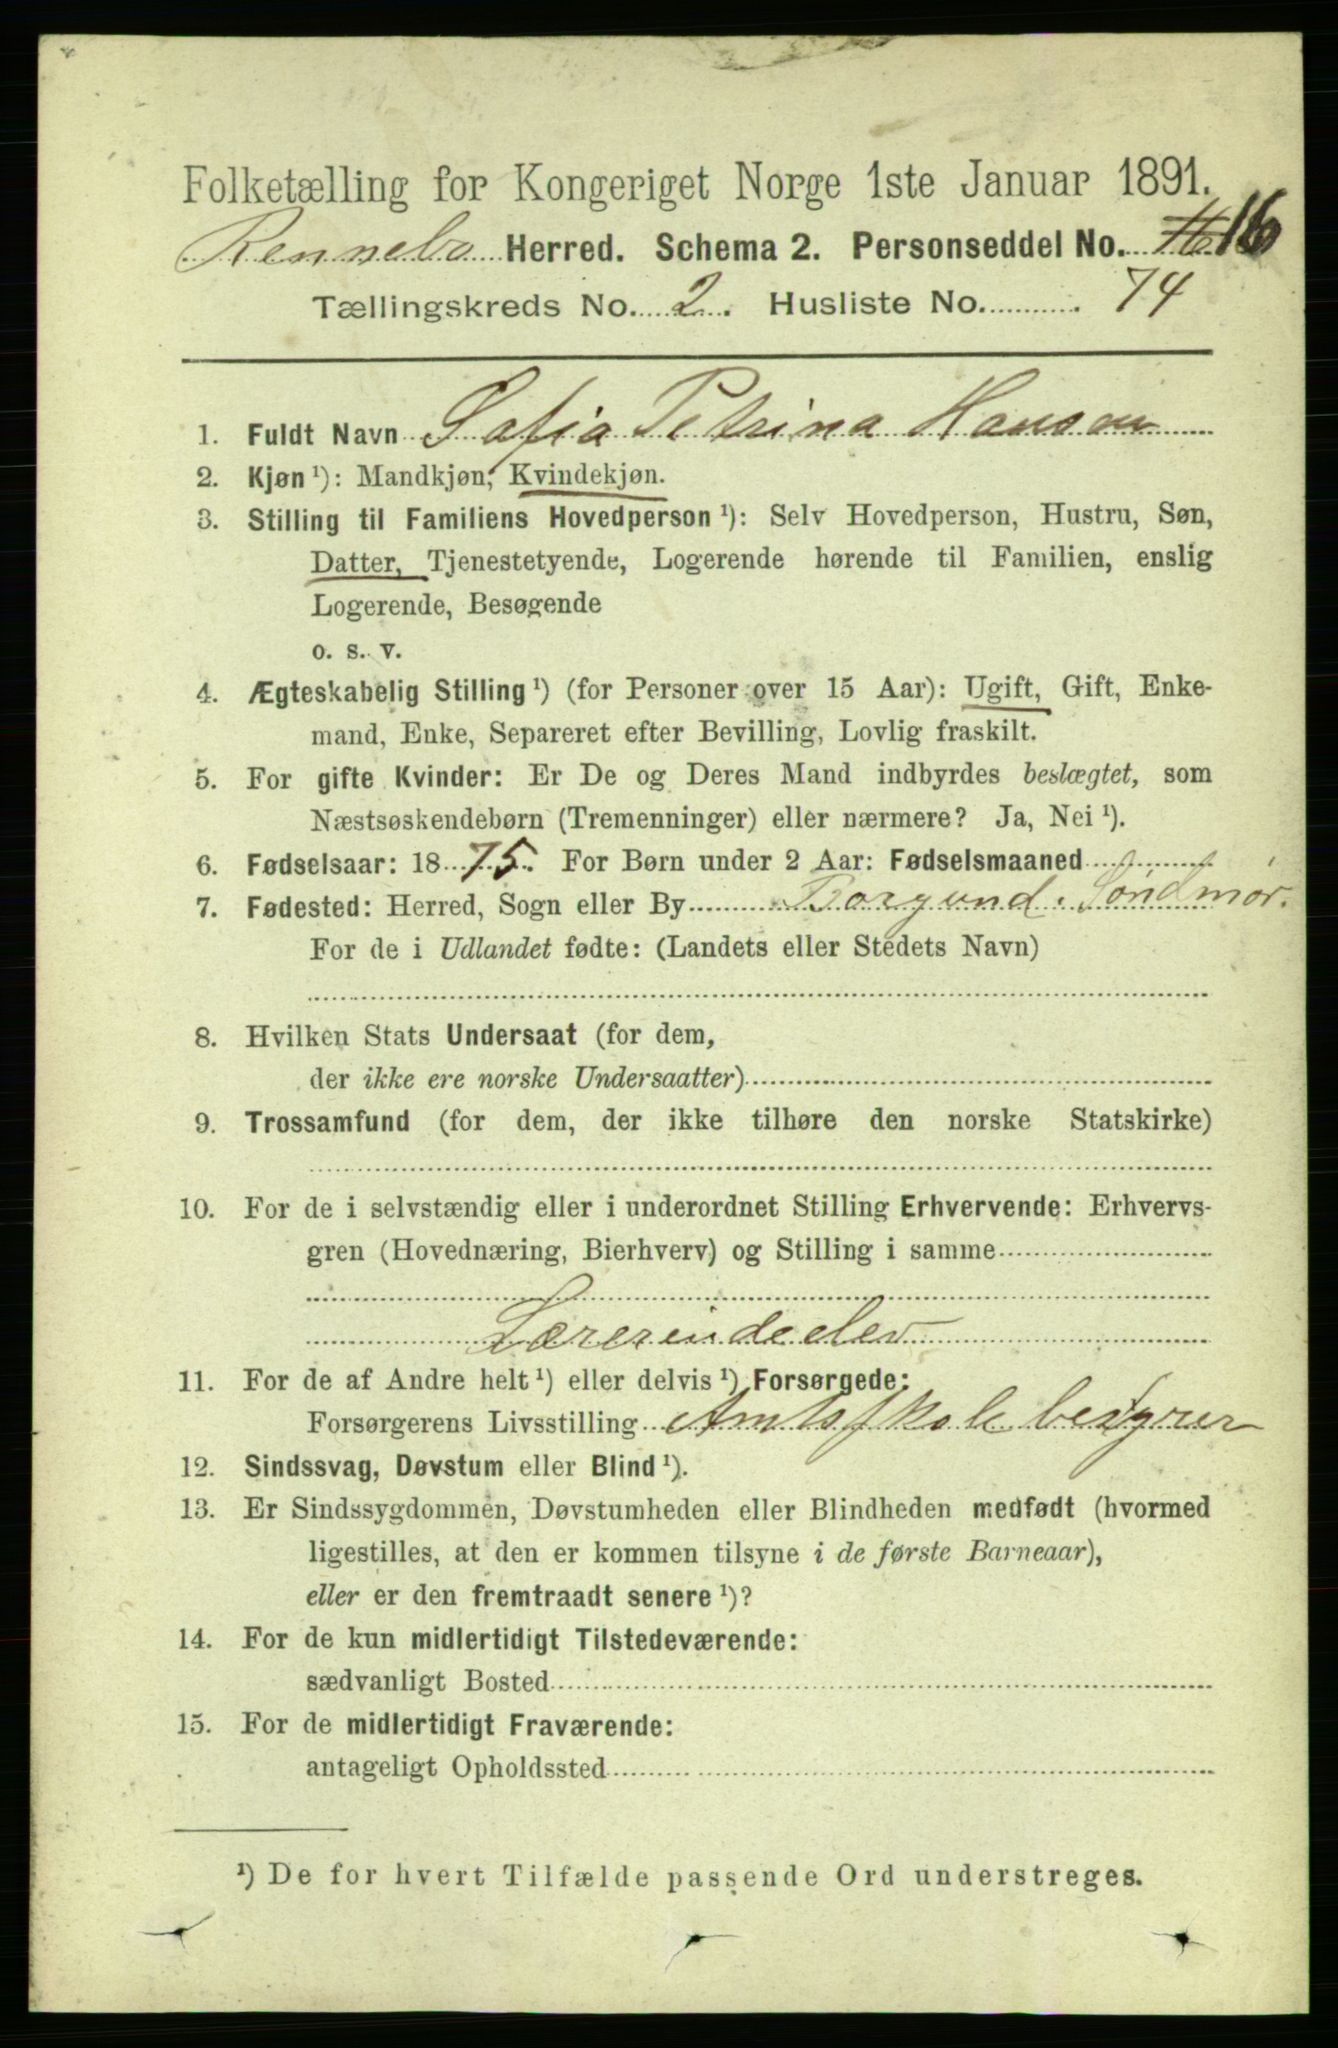 Folketælling for Kongeriget Norge 1ste Januar 1891.
Rennebo Herred. Schema 2. Personseddel No. 16
Tællingskreds No. 2. Husliste No. 74
1. Fuldt Navn Sofia Petrina Hansen
2. Kjøn ¹): Mandkjøn, Kvindekjøn.
3. Stilling til Familiens Hovedperson ¹): Selv Hovedperson, Hustru, Søn,
Datter, Tjenestetyende, Logerende hørende til Familien, enslig
Logerende, Besøgende
o. s. v.
4. Ægteskabelig Stilling ¹) (for Personer over 15 Aar): Ugift, Gift, Enke-
mand, Enke, Separeret efter Bevilling, Lovlig fraskilt.
5. For gifte Kvinder: Er De og Deres Mand indbyrdes beslægtet, som
Næstsøskendebørn (Tremenninger) eller nærmere? Ja, Nei ¹).
6. Fødselsaar: 1875. For Børn under 2 Aar: Fødselsmaaned
7. Fødested: Herred, Sogn eller By Borgund. Söndmör.
For de i Udlandet fødte: (Landets eller Stedets Navn)
8. Hvilken Stats Undersaat (for dem,
der ikke ere norske Undersaatter)
9. Trossamfund (for dem, der ikke tilhøre den norske Statskirke)
10. For de i selvstændig eller i underordnet Stilling Erhvervende: Erhvervs-
gren (Hovednæring, Bierhverv) og Stilling i samme
Lærerindeelev
11. For de af Andre helt ¹) eller delvis ¹) Forsørgede:
Forsørgerens Livsstilling Amtsskolebestyrer
12. Sindssvag, Døvstum eller Blind ¹).
13. Er Sindssygdommen, Døvstumheden eller Blindheden medfødt (hvormed
ligestilles, at den er kommen tilsyne i de første Barneaar),
eller er den fremtraadt senere ¹)?
14. For de kun midlertidigt Tilstedeværende:
sædvanligt Bosted
15. For de midlertidigt Fraværende:
antageligt Opholdssted
¹) De for hvert Tilfælde passende Ord understreges.